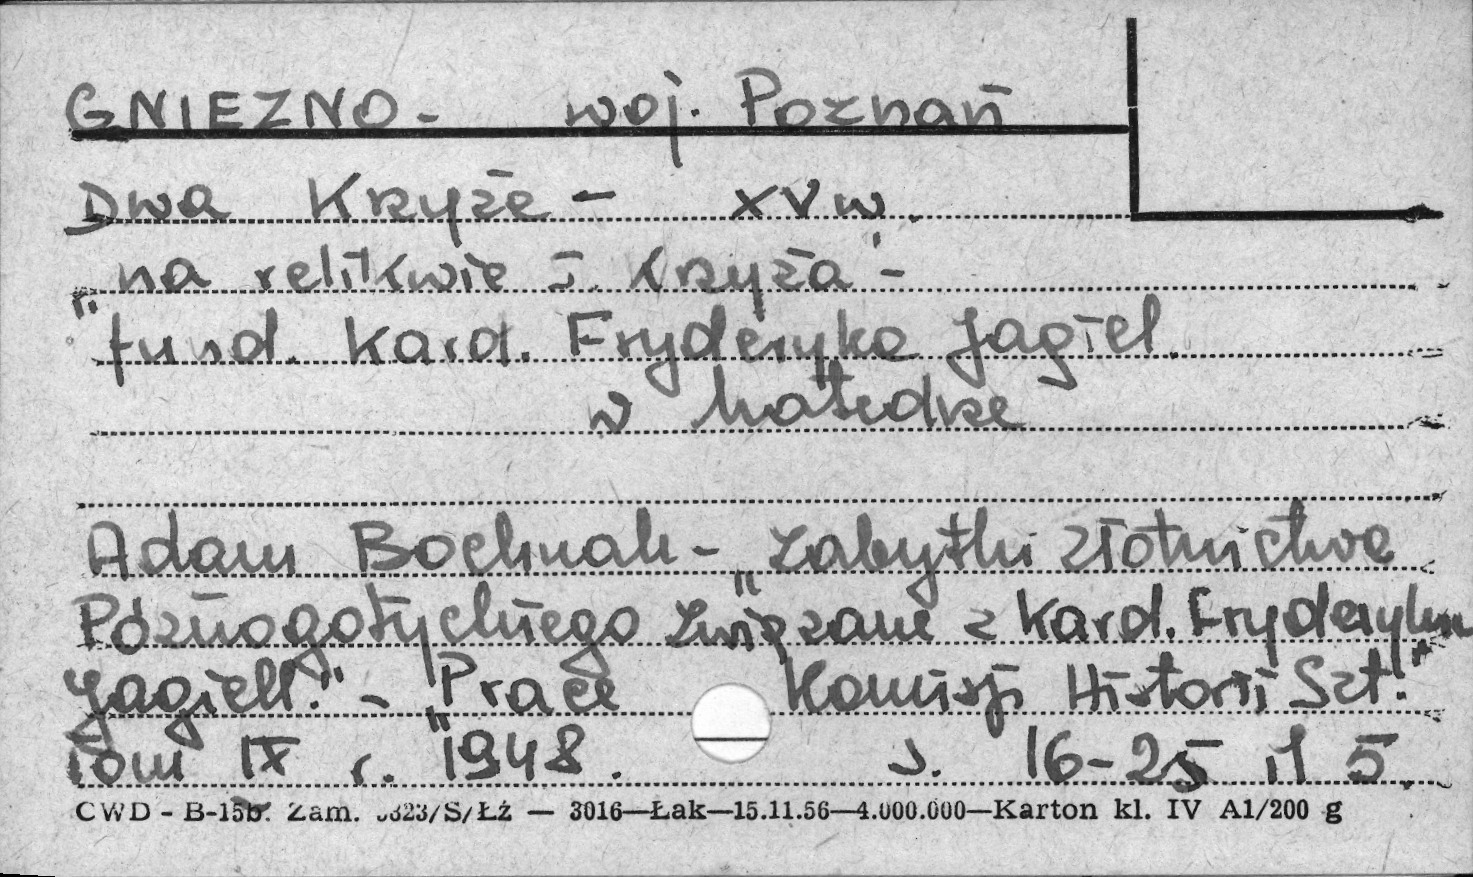 GNIEZNO - woj. Poznań
Dwa Krzyże - XV w.
"na relikwie ś. Krzyża" -
fund. Kard. Fryderyka Jagiel.
w katedrze
Adam Bochnak - "Zabytki złotnictwa
Późnogotyckiego związane z Kard. Fryderykiem
Jagiell." - "Prace Komisji Historii Szt."
Tom IX r. 1948. s. 16-25 il 5.
CWD - B-15b. Zam. 3323/S/Łż — 3016—Łak—15.11.56—4.000.000—Karton kl. IV A1/200 g